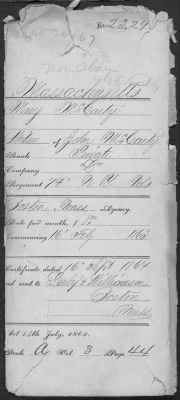 No. 23,248
Massachusetts
Mary McCarty
Widow of John McCarty
Rank Private
Company
Regiment 79" N.Y. Vols
Boston Mass Agency.
Rate per month, $ 8
Commencing 16"
Certificate dated 16" 1864
and sent to
Boston
Mass
Act 14th July, 1862.
Book A Vol. 3 Page 44